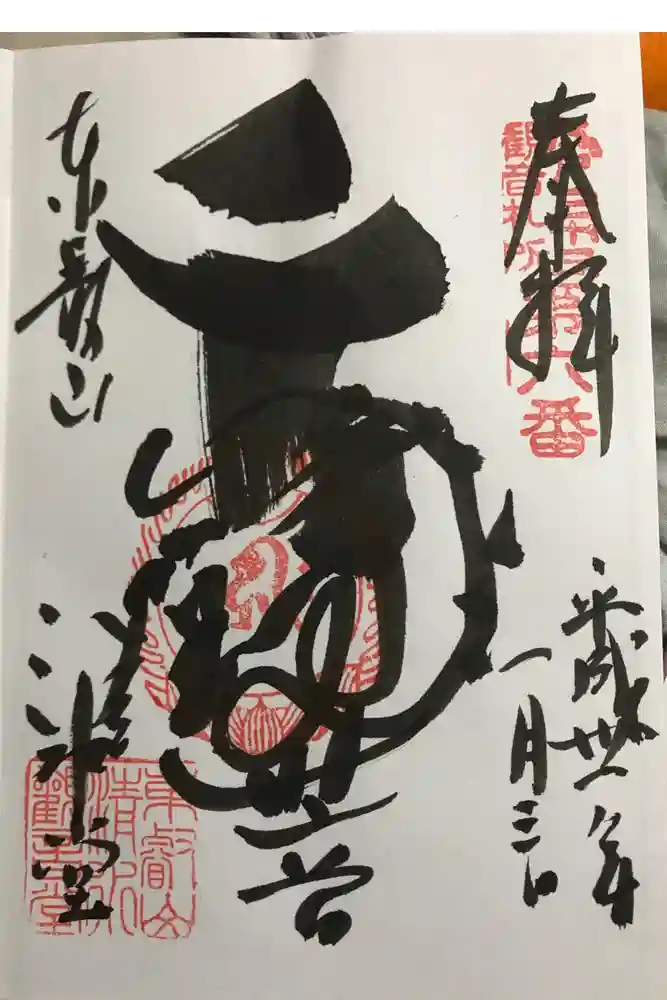 奉拝
第六番
観音札所
平成卅一年
一月三日
千
観音
東叡山
清水堂
東叡山
清水
觀音堂